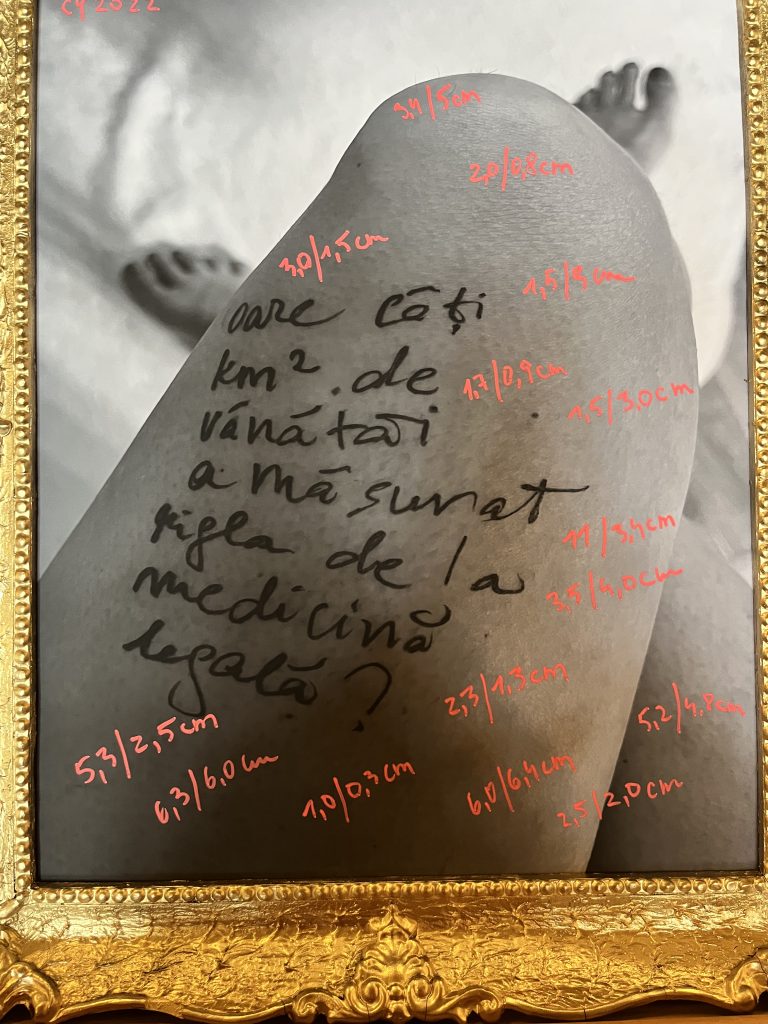 CY 2022
3,4/5cm
2,0/0,8cm
3,0/1,5cm
oare câți
1,5/3cm
km² de
1,7/0,9cm
vânătăi
1,5/3,0cm
a măsurat
rigla de la
11/3,4cm
medicină
3,5/4,0cm
legală?
2,3/1,3cm
5,2/4,8cm
5,3/2,5cm
6,3/6,0cm
1,0/0,3cm
6,0/6,4cm
2,5/2,0cm